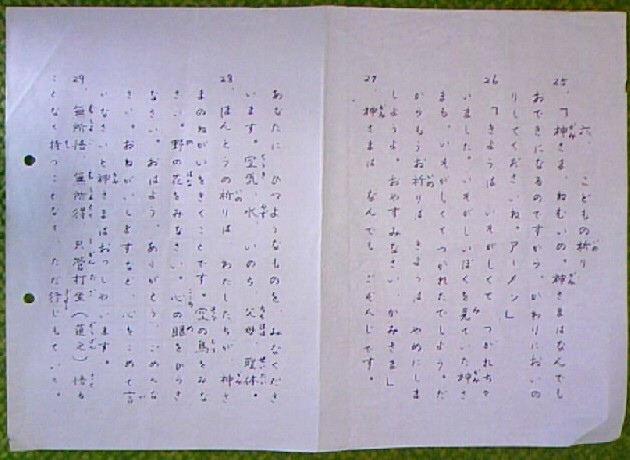 六、こどもの祈り
25、「神さま、ねむいの。神さまはなんでも
おできになるのですから、かわりにおいの
りしてくださいね。アーメン」
26、「きょうは いそがしくて つかれちゃ
いました。いそがしいぼくを見ていた神さ
まも、いそがしくてつかれたでしょう。だ
からもうお祈りは きょうは やめにしま
しょうよ。おやすみなさい、かみさま」
27、神さまは なんでも ごぞんじです。
あなたに ひつようなものを みなくださ
います。空気、水、いのち、父母、聖体。
28、ほんとうの祈りは、わたしたちが 神さ
まのねがいをきくことです。空の鳥をみな
さい。野の花をみなさい。心の眼をひらき
なさい。おはよう、ありがとう、ごめんな
さい、おねがいしますなど、心をこめて言
いなさいと神さまはおっしゃいます。
29、無所悟、無所得、只管打坐(道元)悟る
ことなく待つことなく、ただ行じもていく。